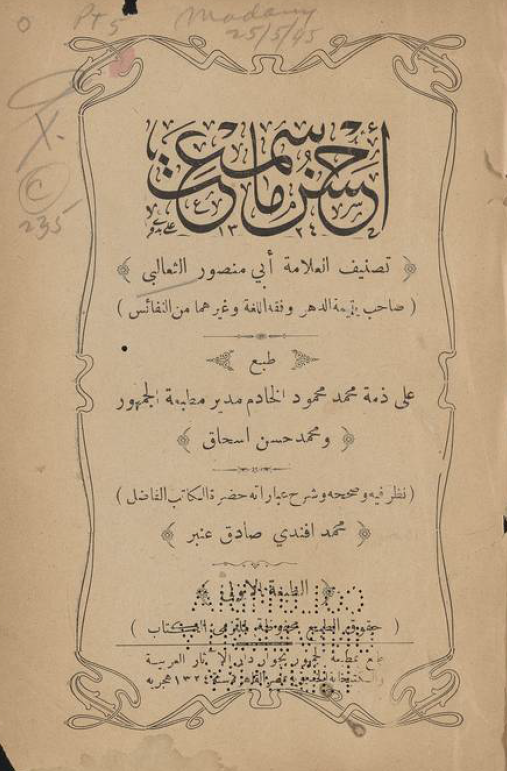 Pt 5
Madany
25/5/45
X.
C
235
أحسن ما سمعت
١٣٢٤
تصنيف العلامة أبي منصور الثعالبي
( صاحب يتيمة الدهر وفقه اللغة وغيرهما من النفائس )
طبع
على ذمة محمد محمود الخادم مدير مطبعة الجمهور
ومحمد حسن اسحاق
( نظر فيه وصححه وشرح عباراته حضرة الكاتب الفاضل )
محمد افندي صادق عنبر
الطبعة الاولى
( حقوق الطبع محفوظة لملتزمي الكتاب )
طبع بمطبعة الجمهور بجوار دار الآثار العربية
والكتبخانة الخديوية بمصر القاهرة سنة ١٣٢٤ هجريه